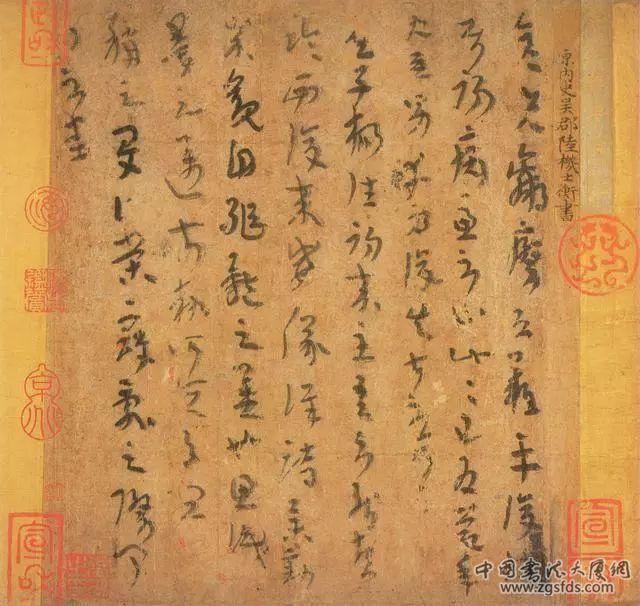 原內史吳郡陸機士衡書
彥先羸瘵恐難平復
往屬初病慮不止此此已為慶承
使唯男幸為復失前憂耳
子楊往初來主吾不能盡
臨西復來威儀詳跱舉動
成觀自軀體之美也思識
量之邁前勢所恒有宜
稱之夏伯榮寇亂之際聞
問不悉
宣和
中國書法大厦網
www.zgsfds.com